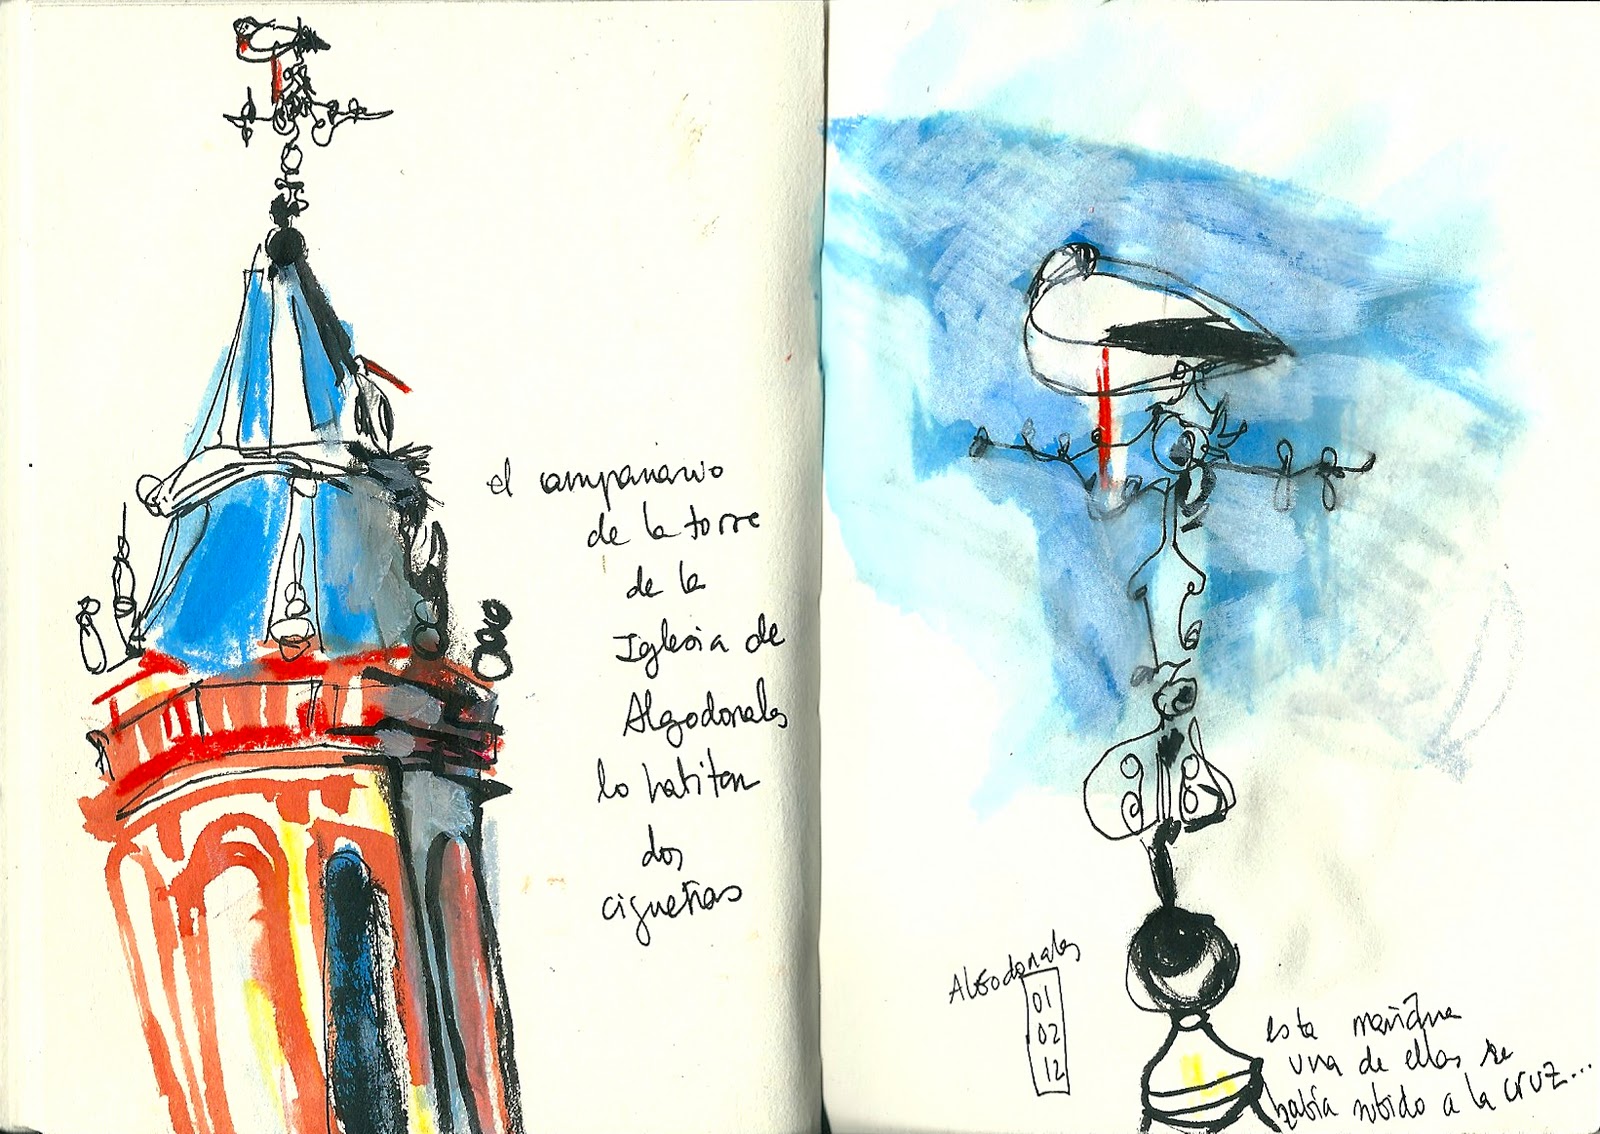 el campanario
de la torre
de la
Iglesia de
Algodonales
lo habitan
dos
cigueñas
Algodonales
01
02
12
esta mañana
una de ellas se
había subido a la cruz...